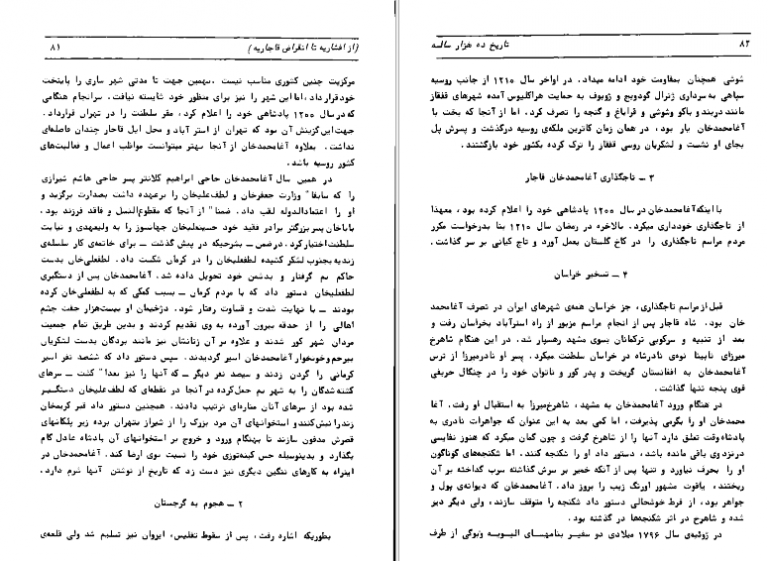 (از افشاریه تا انقراض قاجاریه) ۸۱
مرکزیت چنین کشوری مناسب نیست. بهمین جهت تا مدتی شهر ساری را پایتخت
خود قرار داد، اما این شهر را نیز برای منظور خود شایسته نیافت. سرانجام هنگامی
که در سال ۱۲۰۰ پادشاهی خود را اعلام کرد، مقر سلطنت را در تهران قرارداد.
جهت این گزینش آن بود که تهران از استر آباد و محل ایل قاجار چندان فاصله‌ای
نداشت. بعلاوه آغامحمدخان از آنجا بهتر میتوانست مواظب اعمال و فعالیت‌های
کشور روسیه باشد.
در همین سال آغامحمدخان حاجی ابراهیم کلانتر پسر حاجی هاشم شیرازی
را که سابقا" وزارت جعفرخان و لطف‌علیخان را برعهده داشت بصدارت برگزید و
او را اعتمادالدوله لقب داد. ضمنا" از آنجا که مقطوع‌النسل و فاقد فرزند بود،
باباخان پسر بزرگتر برادر فقید خود حسینقلیخان جهانسوز را به ولیعهدی و نیابت
سلطنت اختیار کرد. درضمن ــ بشرحیکه در پیش گذشت ــ برای خاتمه‌ی کار سلسله‌ی
زندیه بجنوب لشکر کشیده لطفعلیخان را در کرمان شکست داد. لطفعلی‌خان بدست
حاکم بم گرفتار و بدشمن خود تحویل داده شد. آغامحمدخان پس از دستگیری
لطفعلیخان دستور داد که با مردم کرمان ــ بسبب کمکی که به لطفعلی‌خان کرده
بودند ــ با نهایت شدت و قساوت رفتار شود. دژخیمان او بیست‌هزار جفت چشم
اهالی را از حدقه بیرون آورده به وی تقدیم کردند و بدین طریق تمام جمعیت
مردان شهر کور شدند و علاوه بر آن زنانشان نیز مانند بردگان بدست لشکریان
بیرحم و خونخوار آغامحمدخان اسیر گردیدند. سپس دستور داد که ششصد نفر اسیر
کرمانی را گردن زدند و سیصد نفر دیگر ــ که آنها را نیز بعدا" کشت ــ سرهای
کشته‌شدگان را به شهر بم حمل‌کرده در آنجا در نقطه‌ای که لطف‌علیخان دستگیر
شده بود از سرهای آنان مناره‌ای ترتیب دادند. همچنین دستور داد قبر کریمخان
زند را نبش‌کنند و استخوانهای آن مرد بزرگ را از شیراز بتهران برده زیر پلکانهای
قصرش مدفون سازند تا بهنگام ورود و خروج بر استخوانهای آن پادشاه عادل گام
بگذارد و بدینوسیله حس کینه‌توزی خود را نسبت بوی ارضا کند. آغامحمدخان در
اینراه به کارهای ننگین دیگری نیز دست زد که تاریخ از نوشتن آنها شرم دارد.
۲ ــ هجوم به گرجستان
بطوریکه اشاره رفت، پس از سقوط تفلیس، ایروان نیز تسلیم شد ولی قلعه‌ی
۸۲ تاریخ ده هزار ساله
شوشی همچنان بمقاومت خود ادامه میداد. در اواخر سال ۱۲۱۰ از جانب روسیه
سپاهی به سرداری ژنرال گودویچ و زوبوف به حمایت هراکلیوس آمده شهرهای قفقاز
مانند دربند و باکو وشوشی و قراباغ و گنجه را تصرف کرد. اما از آنجا که بخت با
آغامحمدخان یار بود، در همان زمان کاترین ملکه‌ی روسیه درگذشت و پسرش پل
بجای او نشست و لشکریان روسی قفقاز را ترک کرده بکشور خود بازگشتند.
۳ ــ تاجگذاری آغامحمدخان قاجار
با اینکه آغامحمدخان در سال ۱۲۰۰ پادشاهی خود را اعلام کرده بود، معهذا
از تاجگذاری خودداری میکرد. بالاخره در رمضان سال ۱۲۱۰ بنا بدرخواست مکرر
مردم مراسم تاجگذاری را در کاخ گلستان بعمل آورد و تاج کیانی بر سر گذاشت.
۴ ــ تسخیر خراسان
قبل از مراسم تاجگذاری، جز خراسان همه‌ی شهرهای ایران در تصرف آغامحمد
خان بود. شاه قاجار پس از انجام مراسم مزبور از راه استرآباد بخراسان رفت و
بعد از تنبیه و سرکوبی ترکمانان بسوی مشهد رهسپار شد. در این هنگام شاهرخ
میرزای نابینا نوه‌ی نادرشاه در خراسان سلطنت میکرد. پسر او نادرمیرزا از ترس
آغامحمدخان به افغانستان گریخت و پدر کور و ناتوان خود را در چنگال حریفی
قوی پنجه تنها گذاشت.
در هنگام ورود آغامحمدخان به مشهد، شاهرخ‌میرزا به استقبال او رفت. آغا
محمدخان او را بگرمی پذیرفت، اما کمی بعد به این عنوان که جواهرات نادری به
پادشاه وقت تعلق دارد آنها را از شاهرخ گرفت و چون گمان میکرد که هنوز نفایسی
در نزد وی باقی مانده باشد، دستور داد او را شکنجه کنند. اما شکنجه‌های گوناگون
او را بحرف نیاورد و تنها پس از آنکه خمیر بر سرش گذاشته سرب گداخته بر آن
ریختند، یاقوت مشهور اورنگ زیب را بروز داد. آغامحمدخان که دیوانه‌ی پول و
جواهر بود، از فرط خوشحالی دستور داد شکنجه را متوقف سازند، ولی دیگر دیر
شده و شاهرخ در اثر شکنجه‌ها در گذشته بود.
در ژوئیه‌ی سال ۱۷۹۶ میلادی دو سفیر بنامهـای الیـویه وبرگی از طرف